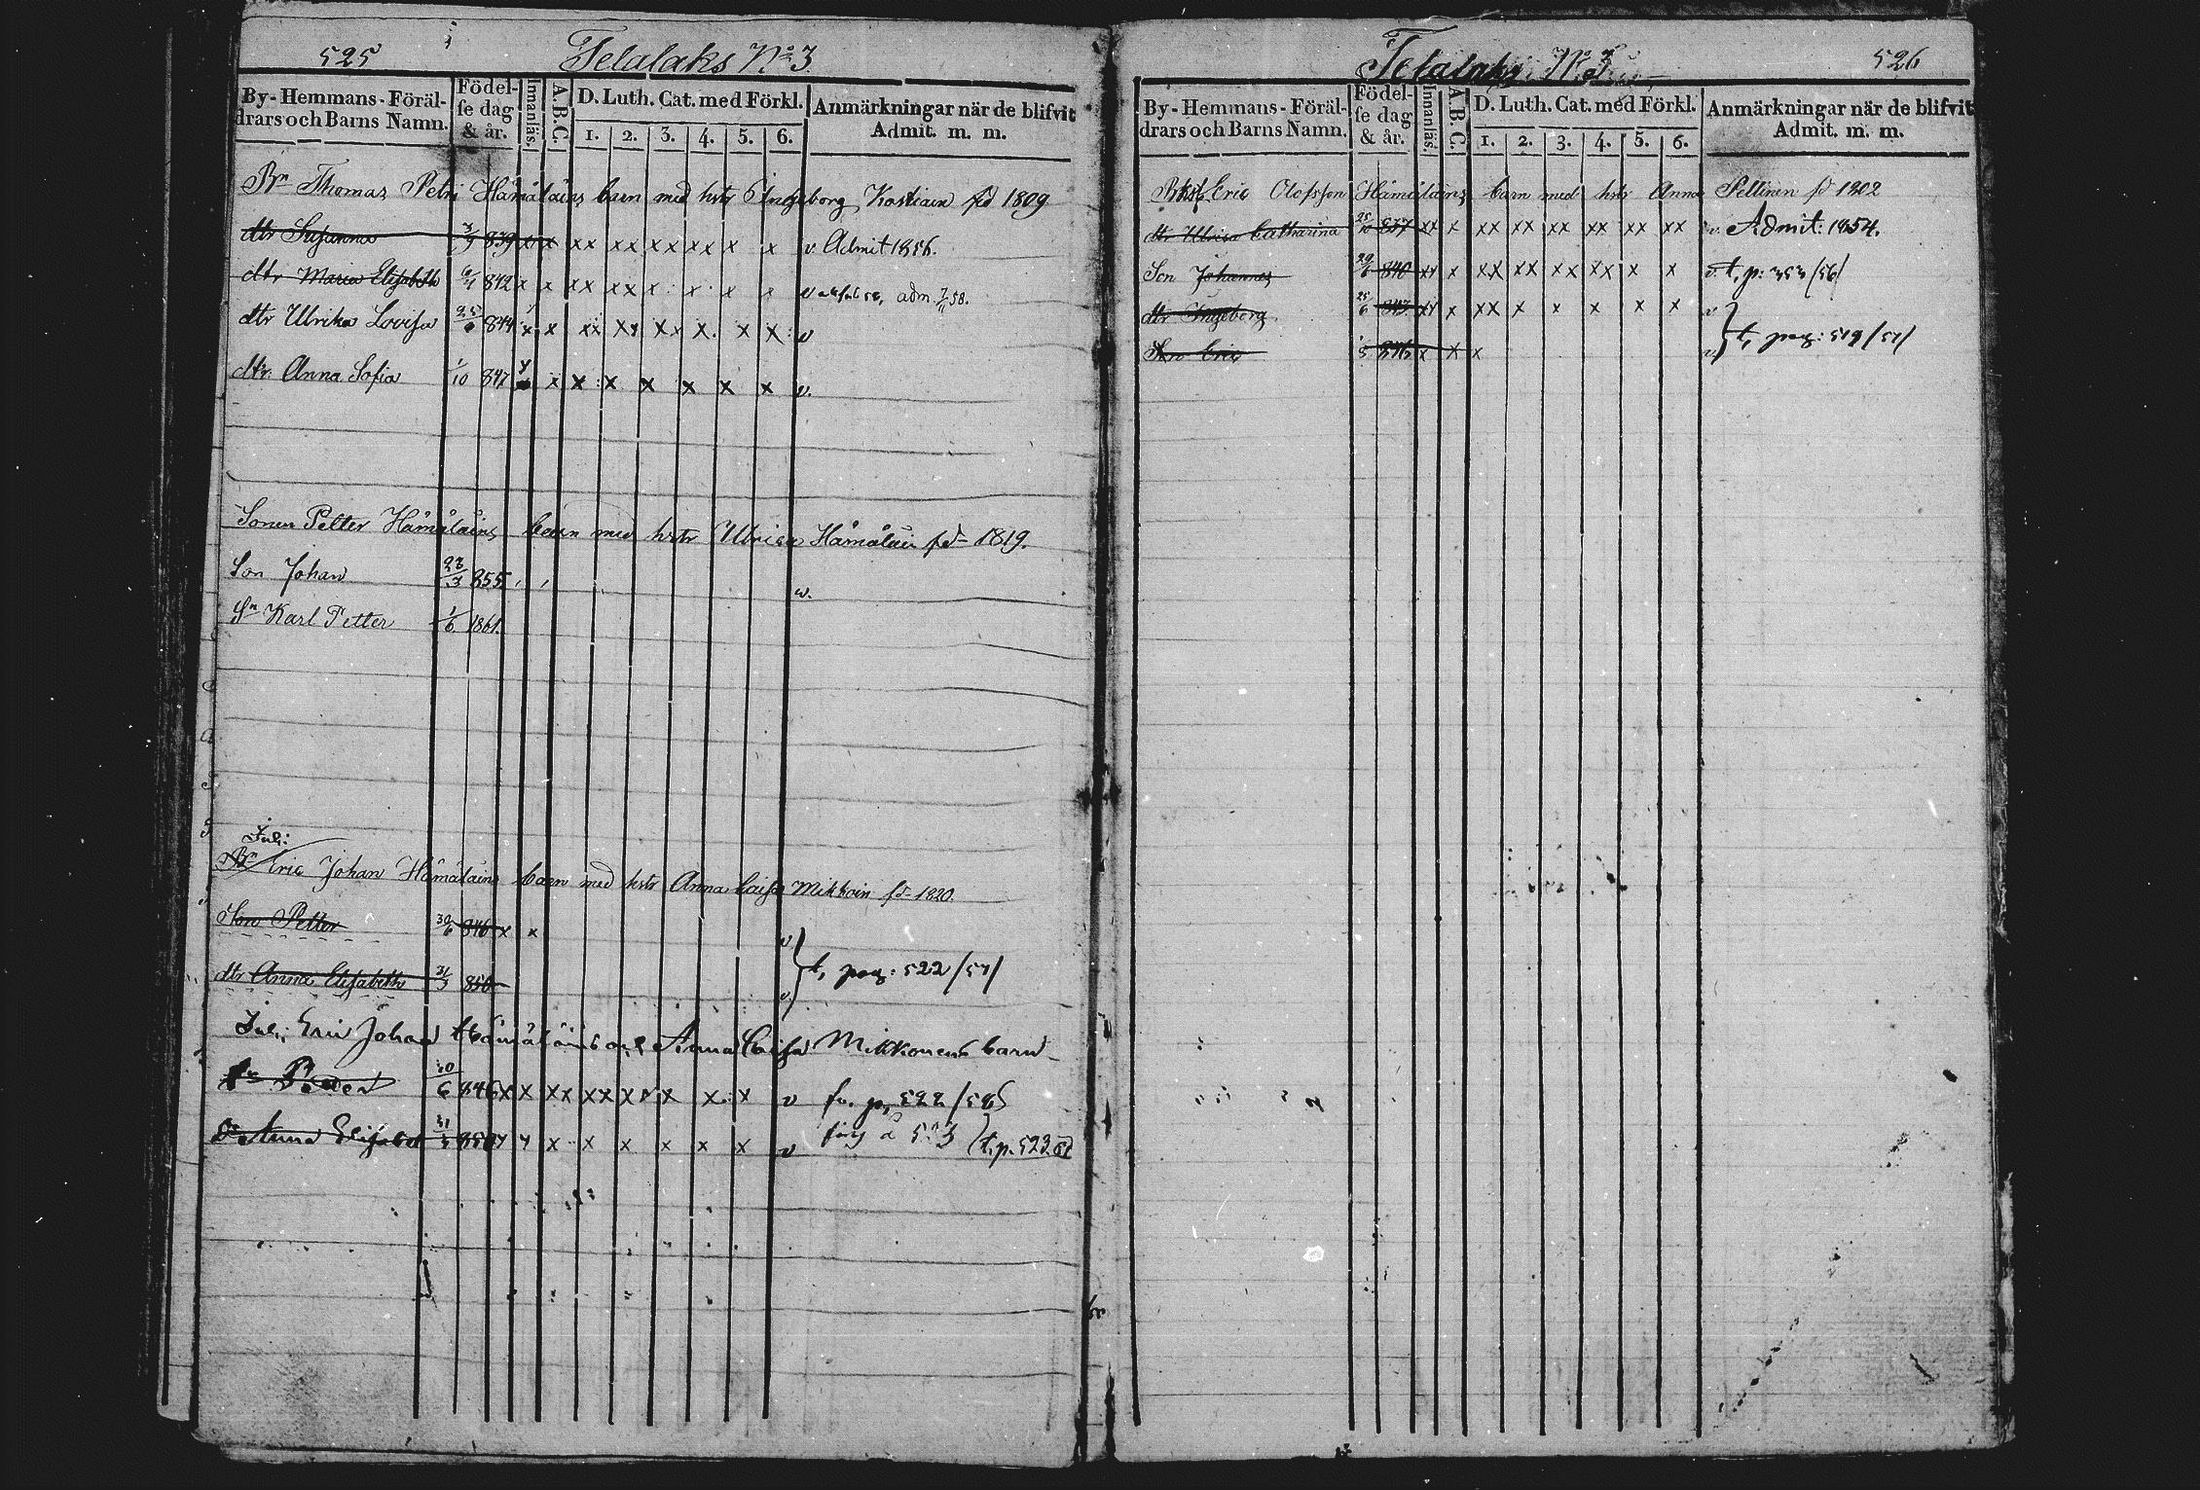 525 Telalaks No 3.
By- Hemmans- Föräl-drars och Barns Namn. Födel-se dag & år. Innanläs. A.B.C. D. Luth. Cat. med Förkl. 1. 2. 3. 4. 5. 6. Anmärkningar när de blifvit Admit. m. m.
Bn Thomas Petri Hämäläins barn med hstr Ingeborg Kostiain fd 1809
dtr Susanna 3/9 839 x x xx xx xx xx x x v Admit 1856.
dtr Maria Elisabeth 6/4 842 x x xx xx x x x x v adm. 7/11 58.
dtr Ulrika Lovisa 25/6 844 x x xx xx xx x x x v
dtr Anna Sofia 1/10 847 x x x x x x x v.
Sonen Petter Hämäläins barn med hstr Ulrica Hämäläin fd 1819.
Son Johan 23/3 855 v.
Sn Karl Petter 1/6 1861.
Inh:
Bn Eric Johan Hämäläins barn med hstr Anna Caisa Mikkoin fd 1820.
Son Petter 30/6 846 x x v
dtr Anna Elisabeth 31/3 850 v } t, pag: 522/57/
Inh: Eric Johan Hämäläins och Anna Caisa Mikkonens barn
Sn Petter 30/6 846 x x xx xx xx x x x v fr. p, 522/58
Dr Anna Elisabet 31/3 850 x x x x x x v t.p. 523
526 Telalaks No 3
By- Hemmans- Föräl-drars och Barns Namn. Födel-se dag & år. Innanläs. A.B.C. D. Luth. Cat. med Förkl. 1. 2. 3. 4. 5. 6. Anmärkningar när de blifvit Admit. m. m.
Eric Olofsson Hämäläins barn med hstr Anna Pellinen fd 1802
dtr Ulrica Catharina 25/10 837 xx x xx xx xx xx xx xx v. Admit: 1854.
Son Johannes 29/6 840 xx x xx xx xx xx x x v. t, p: 353/56/
dtr Ingeborg 25/6 843 xx x xx x x x x x v
Son Eric 1/5 846 x x x v } t, pag: 519/57/